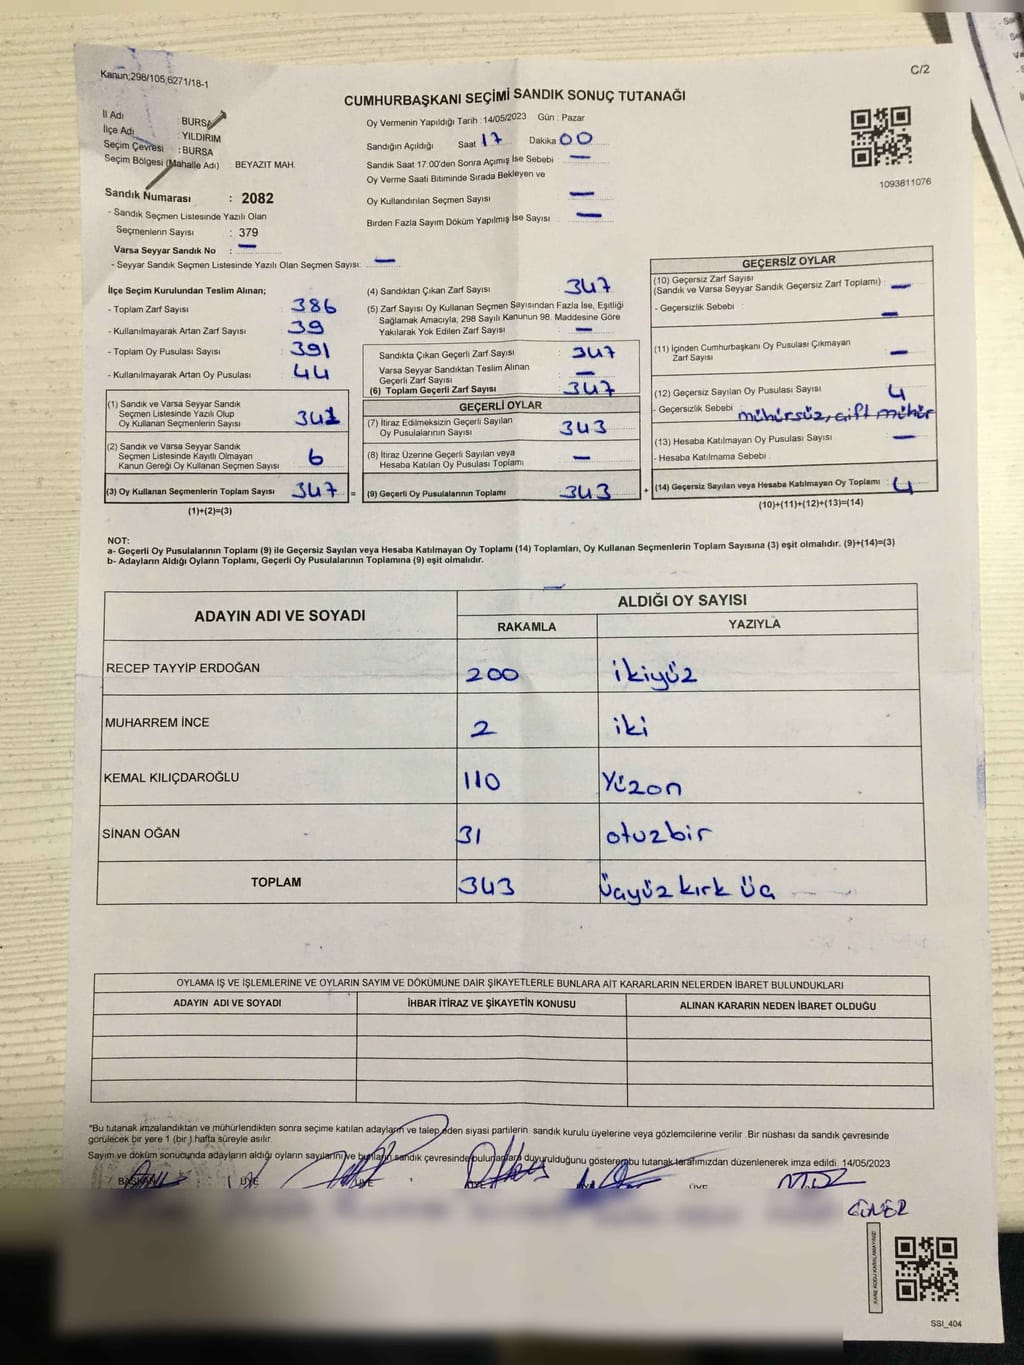 Kanun;298/105,6271/18-1
C/2
CUMHURBAŞKANI SEÇİMİ SANDIK SONUÇ TUTANAĞI
İl Adı : BURSA
İlçe Adı : YILDIRIM
Seçim Çevresi : BURSA
Seçim Bölgesi (Mahalle Adı) : BEYAZIT MAH.
Sandık Numarası : 2082
- Sandık Seçmen Listesinde Yazılı Olan
Seçmenlerin Sayısı : 379
Varsa Seyyar Sandık No : —
- Seyyar Sandık Seçmen Listesinde Yazılı Olan Seçmen Sayısı: —
Oy Vermenin Yapıldığı Tarih : 14/05/2023 Gün : Pazar
Sandığın Açıldığı Saat 17 Dakika 00
Sandık Saat 17:00'den Sonra Açımış İse Sebebi —
Oy Verme Saati Bitiminde Sırada Bekleyen ve
Oy Kullandırılan Seçmen Sayısı —
Birden Fazla Sayım Döküm Yapılmış İse Sayısı —
1093811076
İlçe Seçim Kurulundan Teslim Alınan;
- Toplam Zarf Sayısı 386
- Kullanılmayarak Artan Zarf Sayısı 39
- Toplam Oy Pusulası Sayısı 391
- Kullanılmayarak Artan Oy Pusulası 44
(1) Sandık ve Varsa Seyyar Sandık
Seçmen Listesinde Yazılı Olup
Oy Kullanan Seçmenlerin Sayısı 341
(2) Sandık ve Varsa Seyyar Sandık
Seçmen Listesinde Kayıtlı Olmayan
Kanun Gereği Oy Kullanan Seçmen Sayısı 6
(3) Oy Kullanan Seçmenlerin Toplam Sayısı 347 =
(1)+(2)=(3)
(4) Sandıktan Çıkan Zarf Sayısı 347
(5) Zarf Sayısı Oy Kullanan Seçmen Sayısından Fazla İse, Eşitliği
Sağlamak Amacıyla, 298 Sayılı Kanunun 98. Maddesine Göre
Yakılarak Yok Edilen Zarf Sayısı —
Sandıkta Çıkan Geçerli Zarf Sayısı 347
Varsa Seyyar Sandıktan Teslim Alınan
Geçerli Zarf Sayısı —
(6) Toplam Geçerli Zarf Sayısı 347
GEÇERLİ OYLAR
(7) İtiraz Edilmeksizin Geçerli Sayılan
Oy Pusulalarının Sayısı 343
(8) İtiraz Üzerine Geçerli Sayılan veya
Hesaba Katılan Oy Pusulası Toplamı —
(9) Geçerli Oy Pusulalarının Toplamı 343 +
GEÇERSİZ OYLAR
(10) Geçersiz Zarf Sayısı
(Sandık ve Varsa Seyyar Sandık Geçersiz Zarf Toplamı) : —
- Geçersizlik Sebebi : —
(11) İçinden Cumhurbaşkanı Oy Pusulası Çıkmayan
Zarf Sayısı —
(12) Geçersiz Sayılan Oy Pusulası Sayısı 4
- Geçersizlik Sebebi mühürsüz, çift mühür
(13) Hesaba Katılmayan Oy Pusulası Sayısı —
- Hesaba Katılmama Sebebi
(14) Geçersiz Sayılan veya Hesaba Katılmayan Oy Toplamı : 4
(10)+(11)+(12)+(13)=(14)
NOT:
a- Geçerli Oy Pusulalarının Toplamı (9) ile Geçersiz Sayılan veya Hesaba Katılmayan Oy Toplamı (14) Toplamları, Oy Kullanan Seçmenlerin Toplam Sayısına (3) eşit olmalıdır. (9)+(14)=(3)
b- Adayların Aldığı Oyların Toplamı, Geçerli Oy Pusulalarının Toplamına (9) eşit olmalıdır.
ADAYIN ADI VE SOYADI ALDIĞI OY SAYISI
RAKAMLA YAZIYLA
RECEP TAYYİP ERDOĞAN 200 ikiyüz
MUHARREM İNCE 2 iki
KEMAL KILIÇDAROĞLU 110 Yüzon
SİNAN OĞAN 31 otuzbir
TOPLAM 343 üçyüz kırk üç
OYLAMA İŞ VE İŞLEMLERİNE VE OYLARIN SAYIM VE DÖKÜMÜNE DAİR ŞİKAYETLERLE BUNLARA AİT KARARLARIN NELERDEN İBARET BULUNDUKLARI
ADAYIN ADI VE SOYADI İHBAR İTİRAZ VE ŞİKAYETİN KONUSU ALINAN KARARIN NEDEN İBARET OLDUĞU
*Bu tutanak imzalandıktan ve mühürlendikten sonra seçime katılan adayların ve talep eden siyasi partilerin sandık kurulu üyelerine veya gözlemcilerine verilir. Bir nüshası da sandık çevresinde
görülecek bir yere 1 (bir) hafta süreyle asılır.
Sayım ve döküm sonucunda adayların aldığı oyların sayılarını ve bunların sandık çevresinde bulunanlara duyurulduğunu gösteren bu tutanak tarafımızdan düzenlenerek imza edildi. 14/05/2023
BAŞKAN ÜYE ÜYE ÜYE ÜYE
KARE KODU KARALAMAYINIZ!
SSI_404